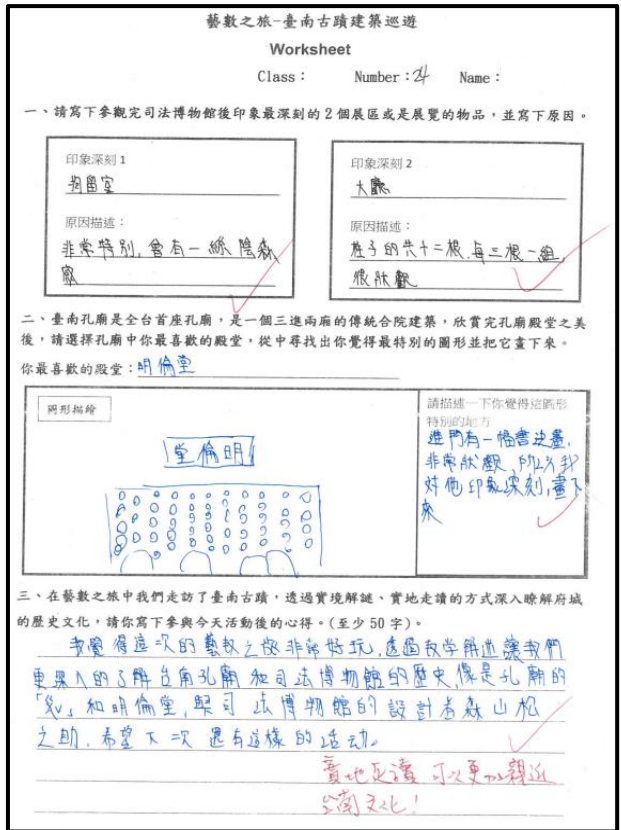 藝數之旅-臺南古蹟建築巡遊
Worksheet
Class： Number：24 Name：
一、請寫下參觀完司法博物館後印象最深刻的 2 個展區或是展覽的物品，並寫下原因。
印象深刻 1
拘留室
原因描述：
非常特別，會有一絲陰森
感
印象深刻 2
大廳
原因描述：
柱子的共十二根，每三根一組，
很狀觀
二、臺南孔廟是全台首座孔廟，是一個三進兩廂的傳統合院建築，欣賞完孔廟殿堂之美
後，請選擇孔廟中你最喜歡的殿堂，從中尋找出你覺得最特別的圖形並把它畫下來。
你最喜歡的殿堂：明倫堂
圖形描繪
堂倫明
請描述一下你覺得這圖形
特別的地方
進門有一幅書法畫，
非常狀觀，所以我
對他印象深刻，畫下
來
三、在藝數之旅中我們走訪了臺南古蹟，透過實境解謎、實地走讀的方式深入瞭解府城
的歷史文化，請你寫下參與今天活動後的心得。(至少 50 字)。
我覺得這一次的藝数之旅非常好玩，透過数学解謎讓我們
更深入的了解台南孔廟和司法博物館的歷史，像是孔廟的
和明倫堂，與司法博物館的設計者森山松
之助，希望下一次還有這樣的活动。
實地走讀 可以更加親近
台南文化！